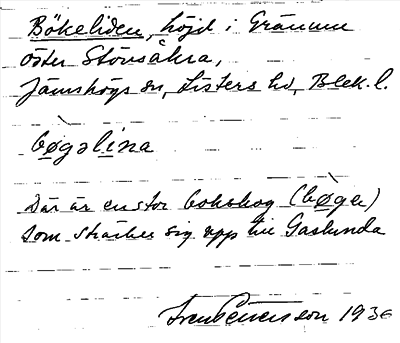 Bökeliden, höjd i Grännum
öster Storsåkra,
Jämshögs sn, Listers hd, Blek. l.
bøgəlina
Där är en stor bokskog (bøger)
som sträcker sig upp till Gaslunda
1936